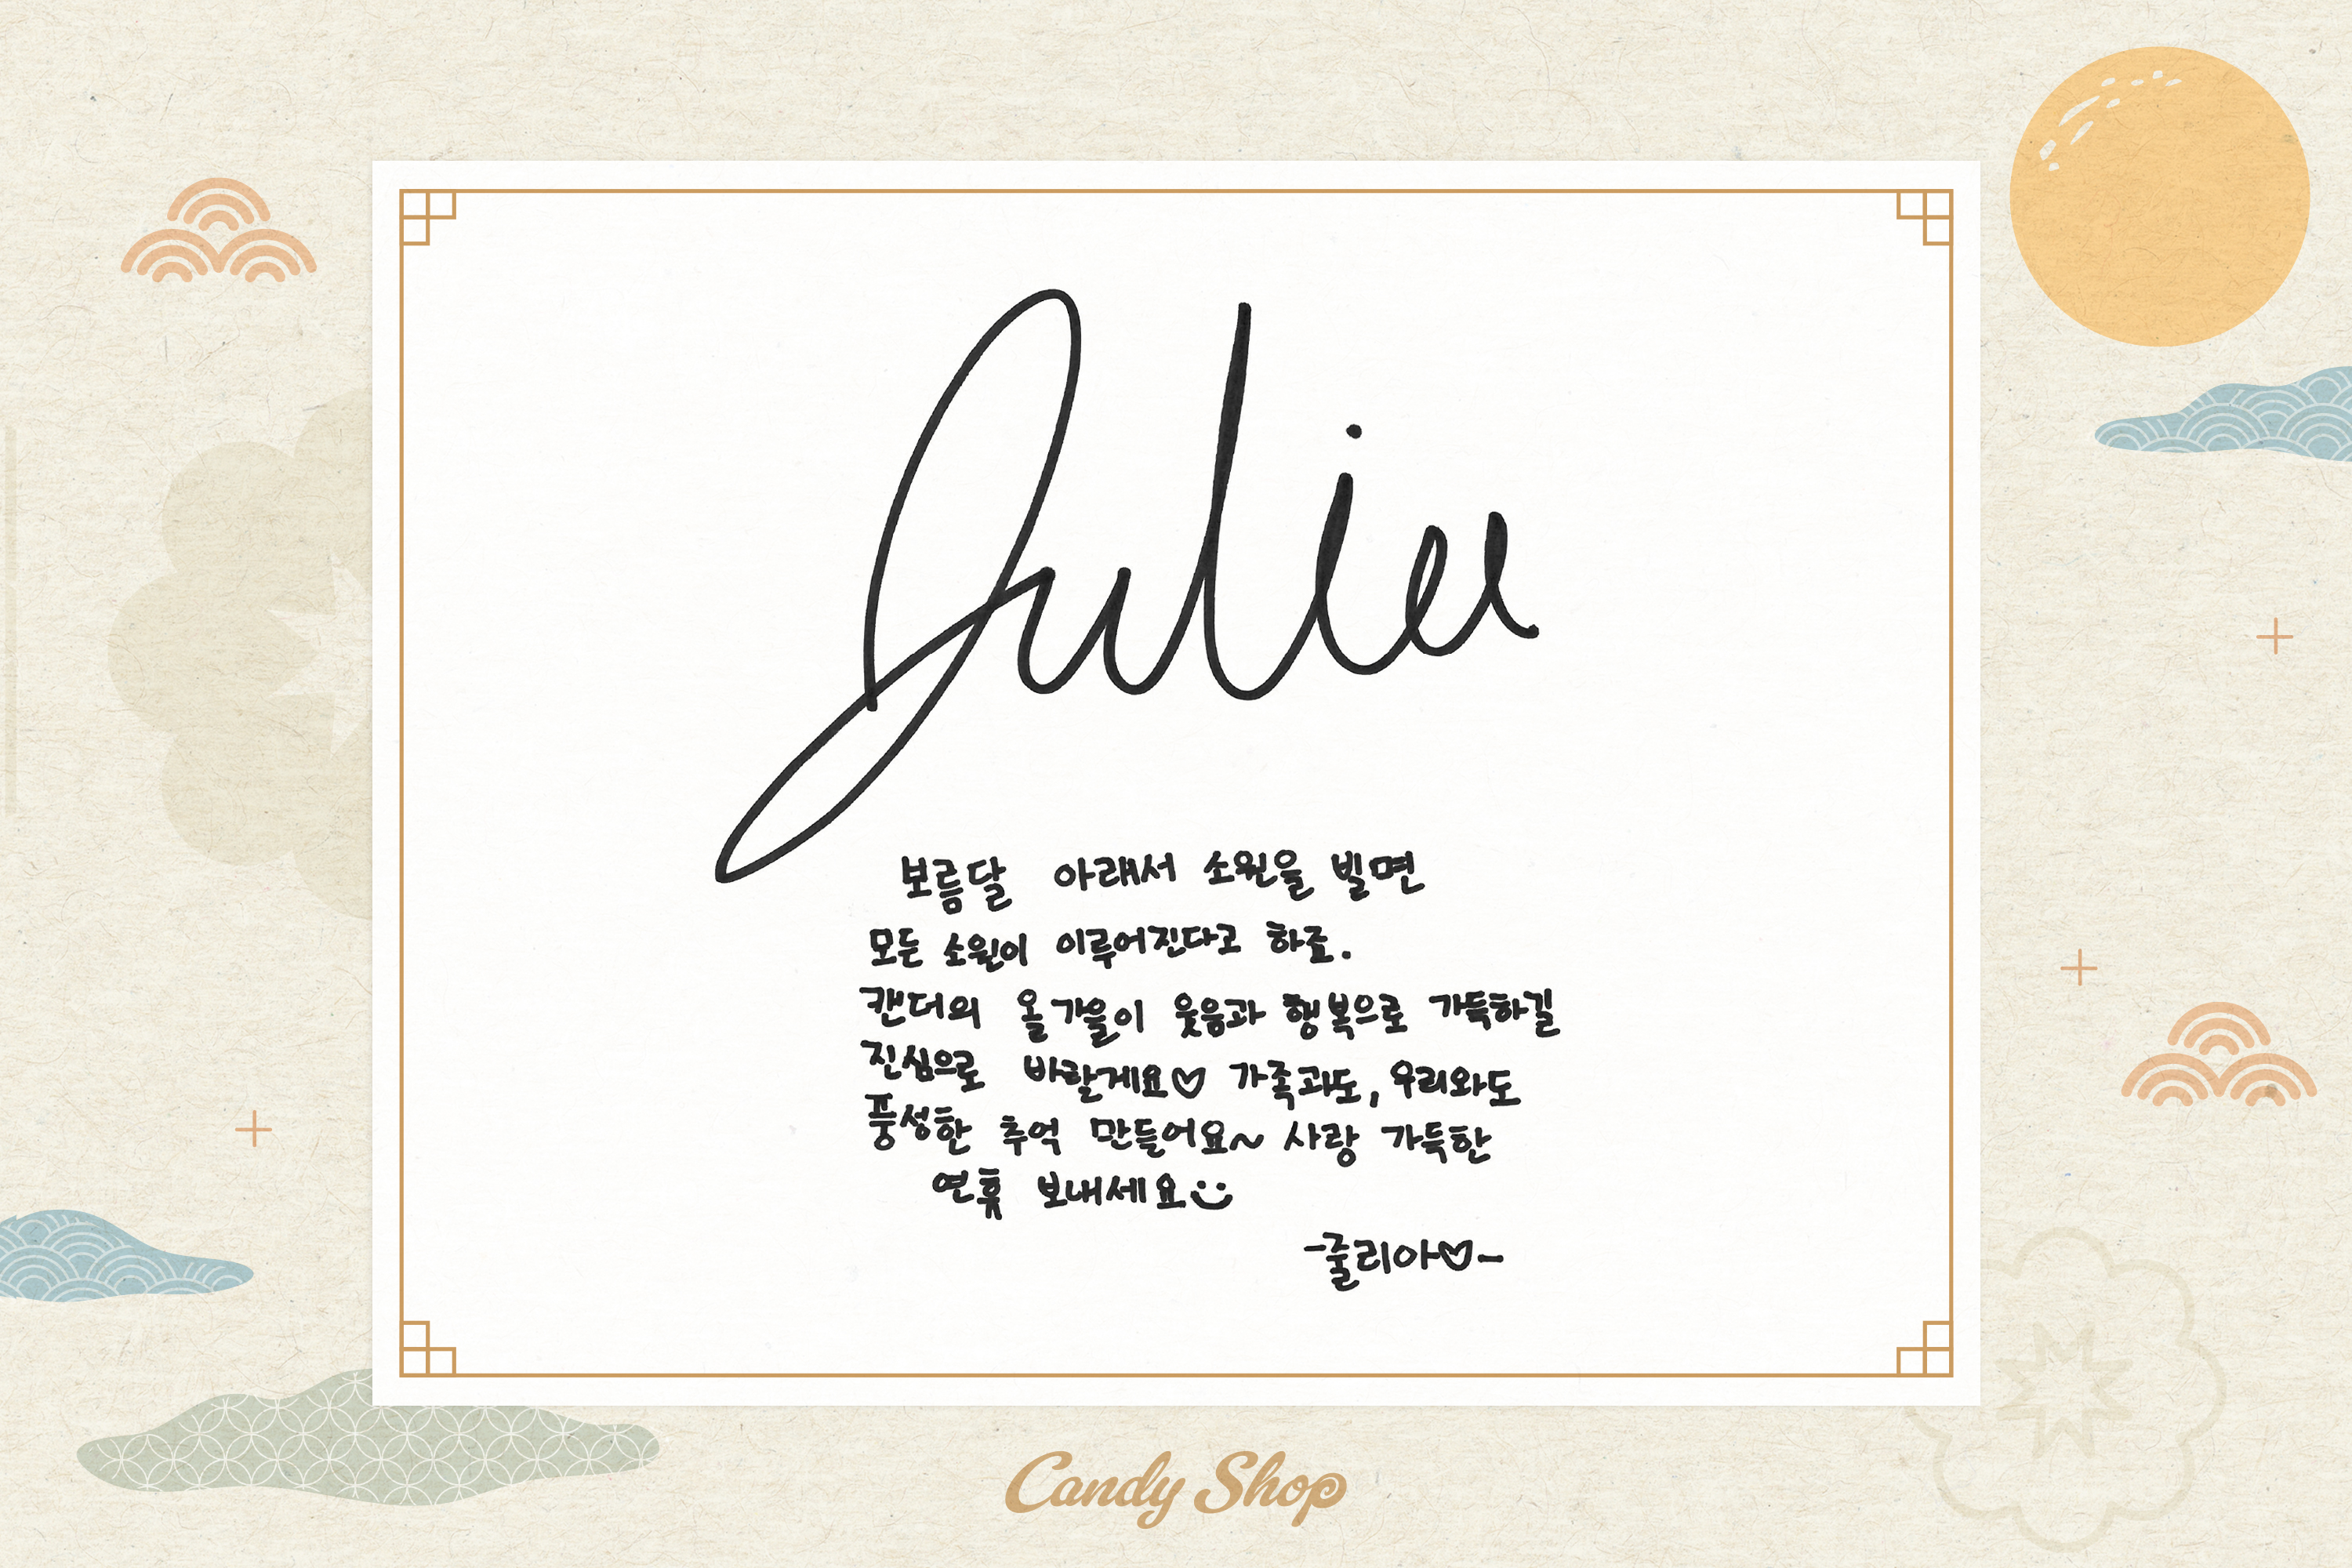 Julia
보름달 아래서 소원을 빌면
모든 소원이 이루어진다고 하죠.
캔더의 올 가을이 웃음과 행복으로 가득하길
진심으로 바랄게요♡ 가족과도, 우리와도
풍성한 추억 만들어요~ 사랑 가득한
연휴 보내세요
-줄리아♡-
Candy Shop